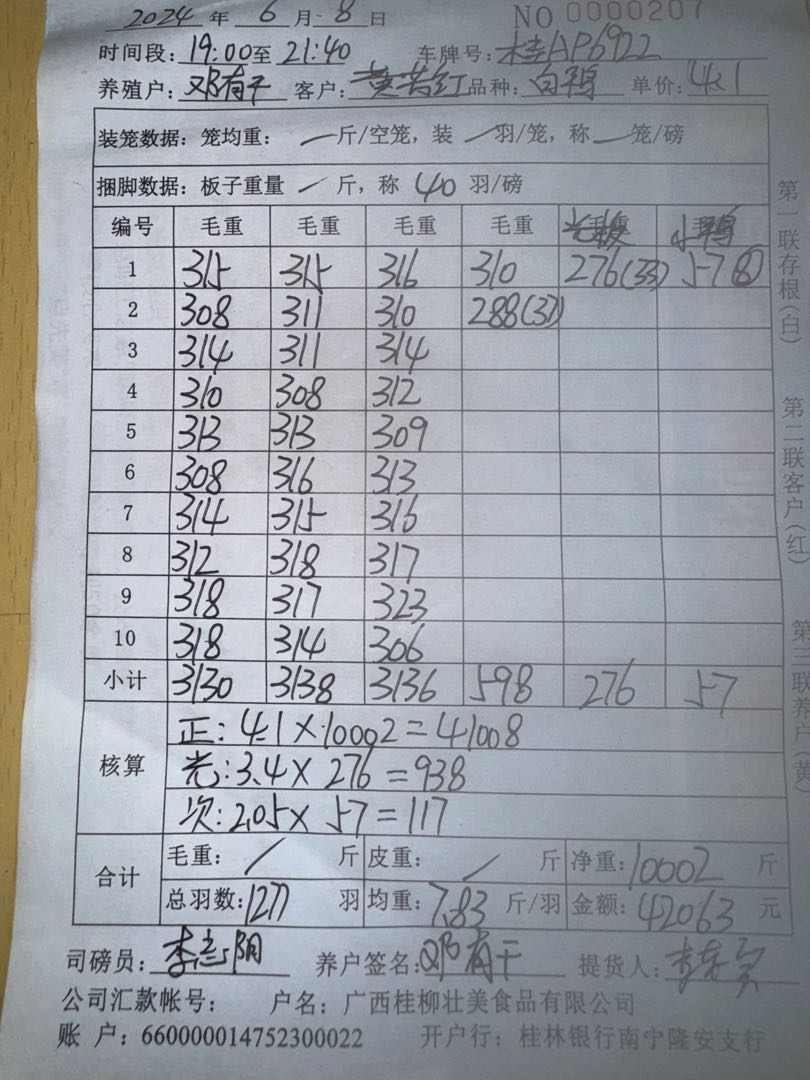 2024 年 6 月 8 日 NO 0000207
时间段: 19:00 至 21:40 车牌号: 桂AP6922
养殖户: 邓有干 客户: 黄 红 品种: 白鸭 单价: 4.1
装笼数据: 笼均重: / 斤/空笼, 装 / 羽/笼, 称 / 笼/磅
捆脚数据: 板子重量 / 斤, 称 40 羽/磅
编号 毛重 毛重 毛重 毛重 光 小鸭
1 315 315 316 310 276(33) 57⑧
2 308 311 310 288(37)
3 314 311 314
4 310 308 312
5 313 313 309
6 308 316 313
7 314 315 316
8 312 318 317
9 318 317 323
10 318 314 306
小计 3130 3138 3136 598 276 57
核算
正: 4.1×10002=41008
光: 3.4×276=938
次: 2.05×57=117
合计
毛重: / 斤 皮重: / 斤 净重: 10002 斤
总羽数: 1277 羽 均重: 7.83 斤/羽 金额: 42063 元
司磅员: 李志阴 养户签名: 邓有干 提货人: 李
公司汇款帐号: 户名: 广西桂柳壮美食品有限公司
账 户: 660000014752300022 开户行: 桂林银行南宁隆安支行
第一联存根(白) 第二联客户(红) 第三联养户(黄)